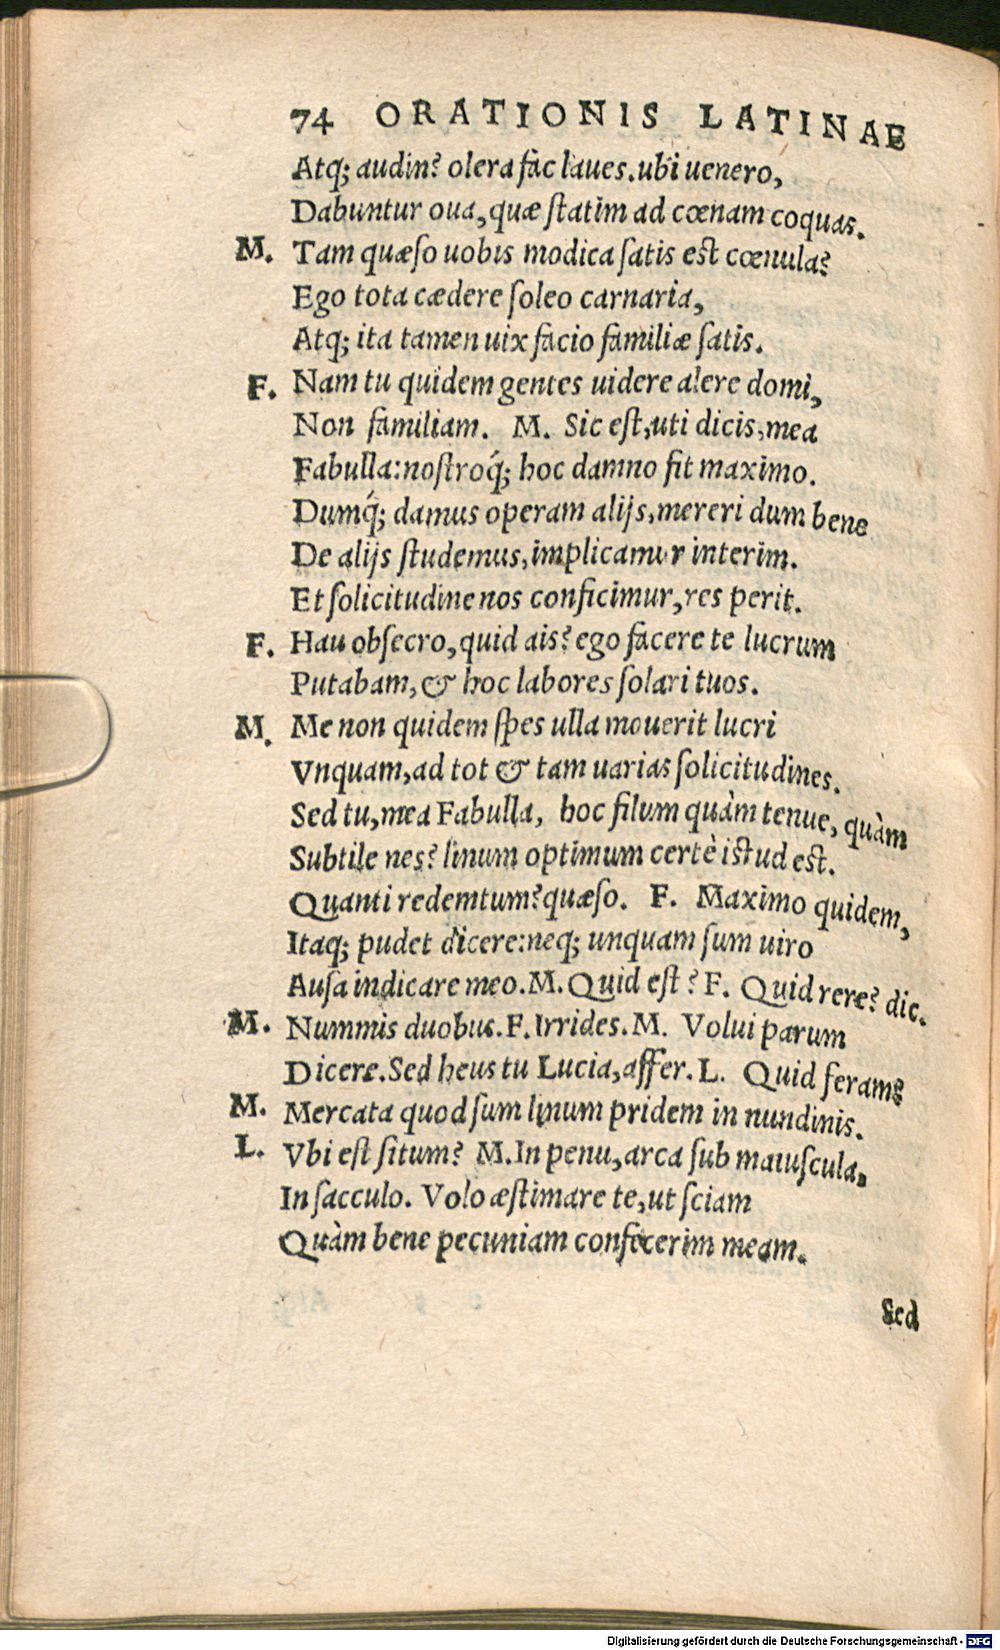 74 ORATIONIS LATINAE
Atq; audin? olera fac laues. ubi uenero,
Dabuntur oua, quæ ſtatim ad cœnam coquas.
M. Tam quæſo uobis modica ſatis eſt cœnula?
Ego tota cædere ſoleo carnaria,
Atq; ita tamen uix facio familiæ ſatis.
F. Nam tu quidem gentes uidere alere domi,
Non familiam. M. Sic eſt, uti dicis, mea
Fabulla: noſtroq́; hoc damno fit maximo.
Dumq́; damus operam alijs, mereri dum bene
De alijs ſtudemus, implicamur interim.
Et ſolicitudine nos conficimur, res perit.
F. Hau obſecro, quid ais? ego facere te lucrum
Putabam, & hoc labores ſolari tuos.
M. Me non quidem ſpes ulla mouerit lucri
Vnquam, ad tot & tam uarias ſolicitudines.
Sed tu, mea Fabulla, hoc filum quàm tenue, quàm
Subtile nes? linum optimum certè iſtud eſt.
Quanti redemtum? quæſo. F. Maximo quidem,
Itaq; pudet dicere: neq; unquam ſum uiro
Auſa indicare meo. M. Quid eſt? F. Quid rere? dic.
M. Nummis duobus. F. Irrides. M. Volui parum
Dicere. Sed heus tu Lucia, affer. L. Quid feram?
M. Mercata quod ſum linum pridem in nundinis.
L. Vbi eſt ſitum? M. In penu, arca ſub maiuſcula,
In ſacculo. Volo æſtimare te, ut ſciam
Quàm bene pecuniam confecerim meam.
Sed
Digitalisierung gefördert durch die Deutsche Forschungsgemeinschaft - DFG